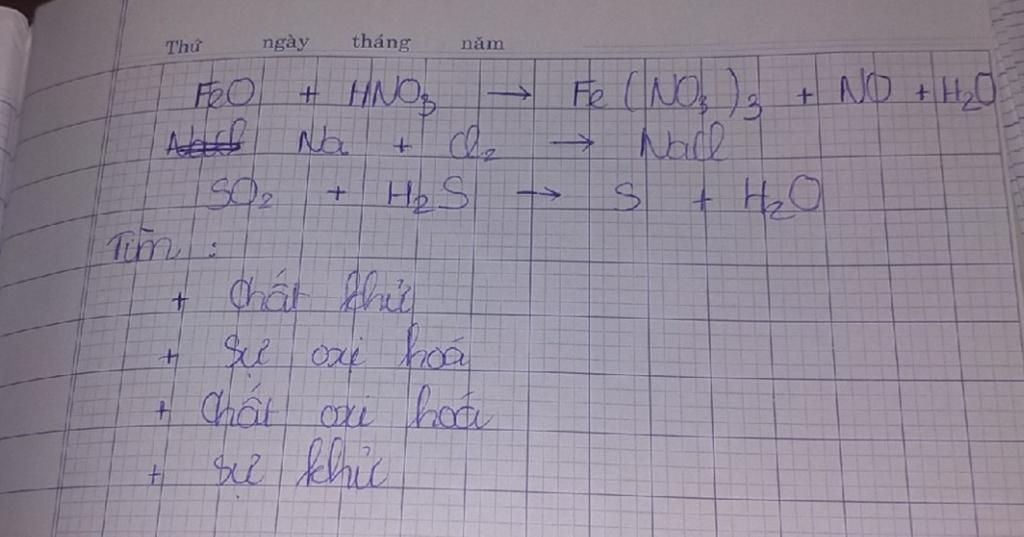 Thứ ngày tháng năm
FeO + HNO₃ → Fe(NO₃)₃ + NO + H₂O
Na + Cl₂ → NaCl
SO₂ + H₂S → S + H₂O
Tìm :
+ Chất khử
+ Sự oxi hoá
+ Chất oxi hoá
+ Sự khử